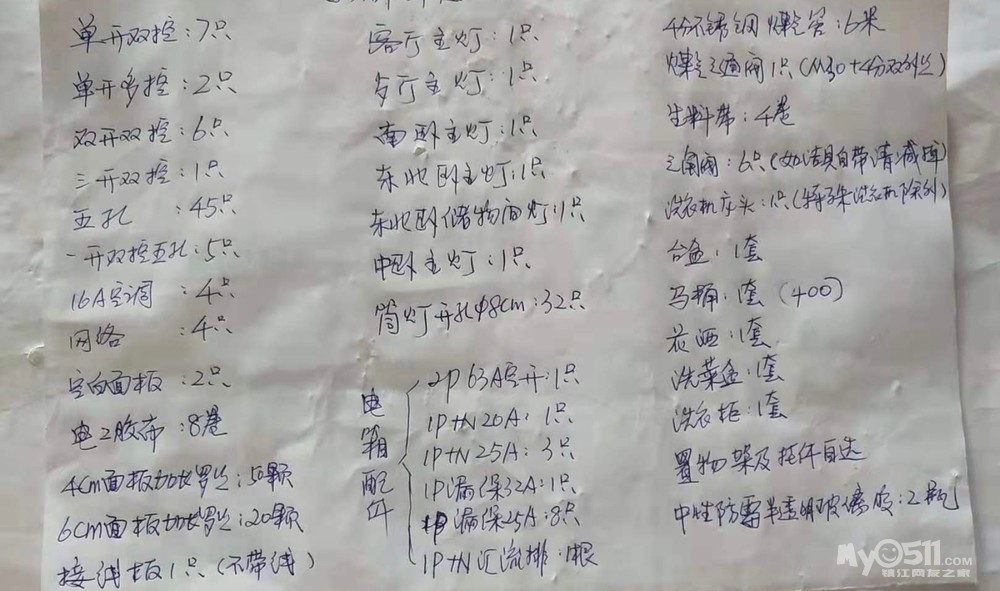 单开双控:7只
单开多控:2只
双开双控:6只
三开双控:1只
五孔:45只
一开双控五孔:5只
16A空调:4只
网络:4只
空白面板:2只
电工胶布:8卷
4cm面板加长罗丝:50颗
6cm面板加长罗丝:20颗
接线板1只(不带线)
客厅主灯:1只
歺厅主灯:1只
南卧主灯:1只
东北卧主灯:1只
东北卧储物间灯:1只
中卧主灯:1只
筒灯开孔φ8cm:32只
电箱配件
2P63A空开:1只
1P+N20A:1只
1P+N25A:3只
1P漏保32A:1只
1P漏保25A:8只
1P+N汇流排:1根
4分不锈钢燃气管:6米
燃气三通阀1只(M30+4分双外丝)
生料带:4卷
三角阀:6只(如洁具自带请减回)
洗衣机龙头:1只(特殊洗衣机除外)
台盆:1套
马桶:1套(400)
花洒:1套
洗菜盆:1套
洗衣柜:1套
置物架及挂件自选
中性防霉半透明玻璃胶:2瓶
My0511.com
镇江网友之家